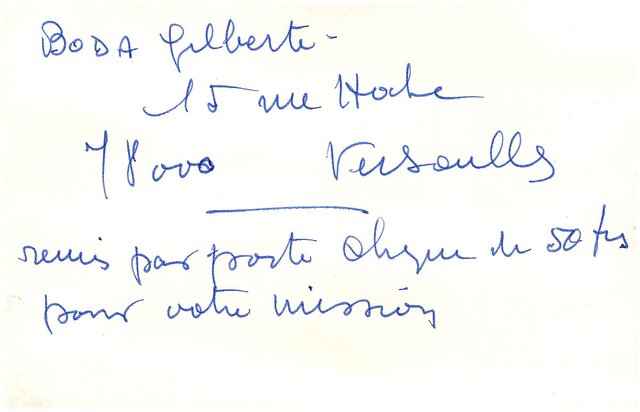 BODA Gilberte -
15 rue Hoche
78000 Versailles
remis par poste chèque de 50 frs
pour votre mission